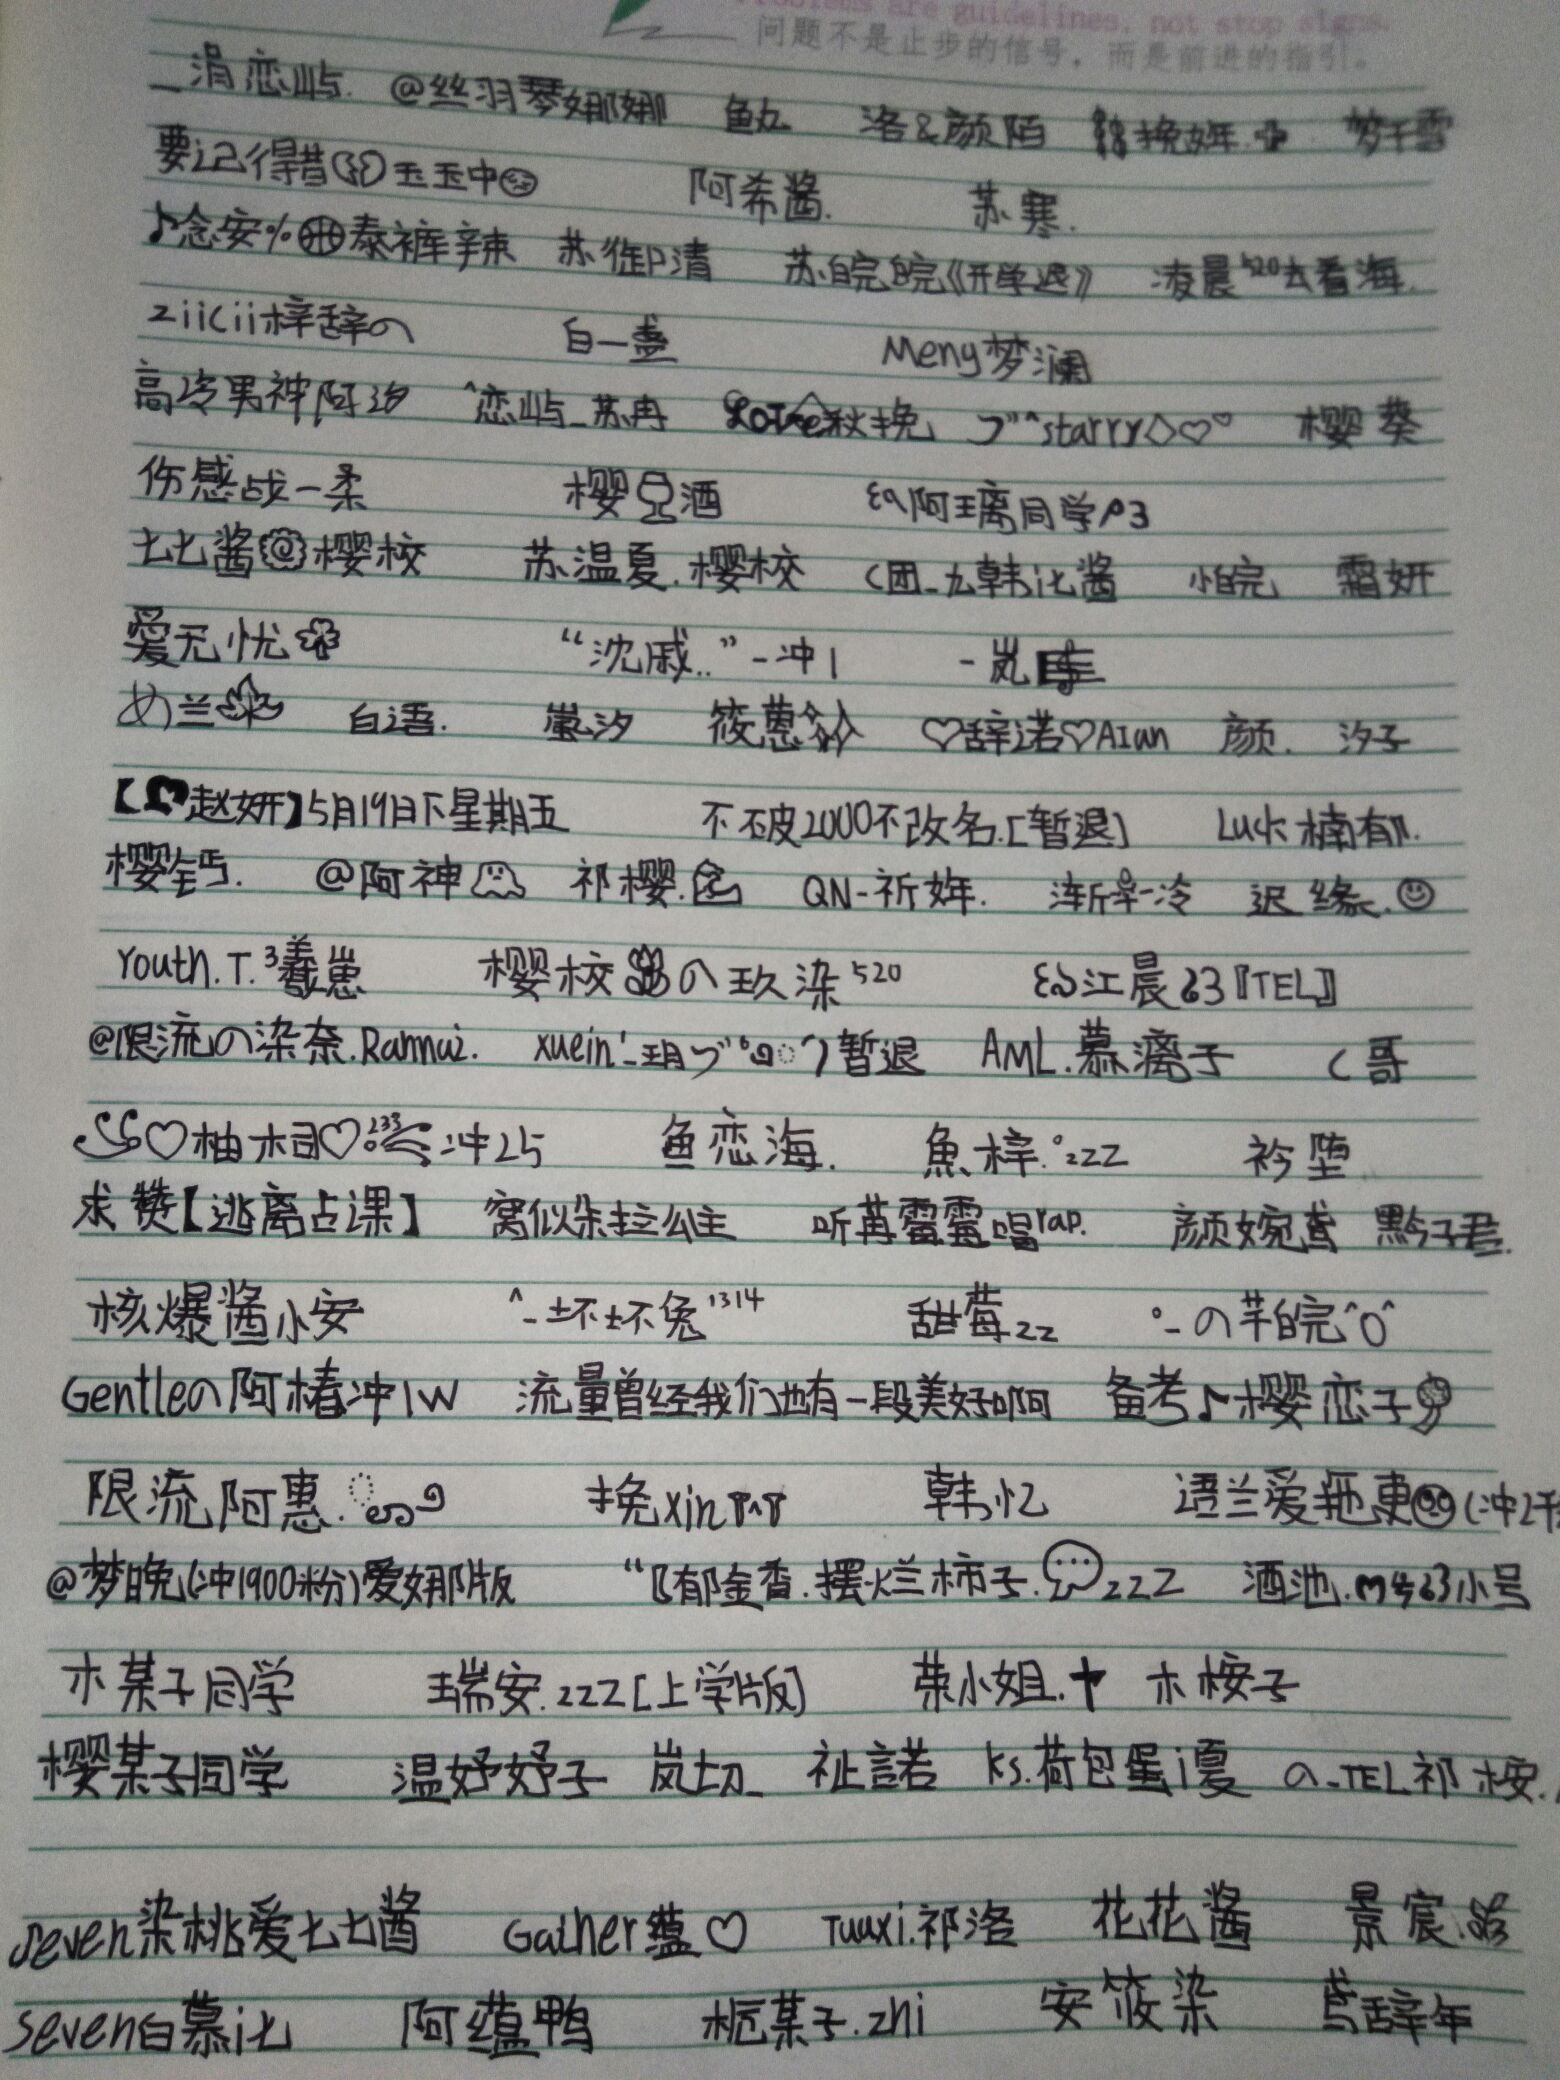 Problems are guidelines, not stop signs.
问题不是止步的信号，而是前进的指引。
_涓恋屿. @丝羽琴娜娜 鱿 洛&颜陌 挽妍. 梦千雪
要记得昔 玉玉中 阿希酱. 苏寒.
♪念安% 泰裤辣 苏御清 苏皖皖《开学退》 凌晨520去看海.
ziicii梓辞の 白一盏 Meng梦澜
高冷男神阿汐 ^恋屿_苏冉 秋挽 づ^starry◇♡ 樱葵
伤感战一柔 樱 酒 阿璃同学
七七酱@樱校 苏温夏.樱校 怕皖 霜妍
爱无忧 “沈戚..”-冲1 -岚
め兰 白语. 嵐汐 筱蒽 ♡辞诺♡Aian 颜. 汐子
【 赵妍】5月19日下星期五 不破2000不改名.[暂退] Luck楠郁.
樱钙. @阿神 祁樱. QN-祈妍. 渐 冷 迟缘.
Youth.T.³ 崽 樱校 の玖染520 江晨63『TEL』
@限流の染奈. xuein'_玥 暂退 AML.慕漓子 C哥
♡柚木司♡233 冲25 鱼恋海. 魚梓.°zzz 衿堕
求赞【逃离占课】 窝似朵拉公主 听苒霉霉唱rap. 颜婉鸢 黔子君.
核爆酱小安 ^-坏坏兔1314 甜莓zz °-の芊皖^0^
Gentleの阿椿冲1W 流量曾经我们也有一段美好啊 备考♪樱恋子
限流阿惠. 挽xin 韩忆 语兰爱拖更 (冲2千
@梦晚(冲1900粉)爱娜版 “〖郁金香.摆烂柿子. zzz 酒池. 63小号
木某子同学 瑞安.zzz[上学版] 荣小姐.† 木桉子
樱某子同学 温妤妤子 岚切_ 祉諾 ks.荷包蛋i夏 の-TEL祁桉.
seven染桃爱七七酱 Gather蕴♡ Tuuxi.祁洛 花花酱 景宸.
seven白慕i七 阿蕴鸭 栀某子.zhi 安筱染 鸢辞年